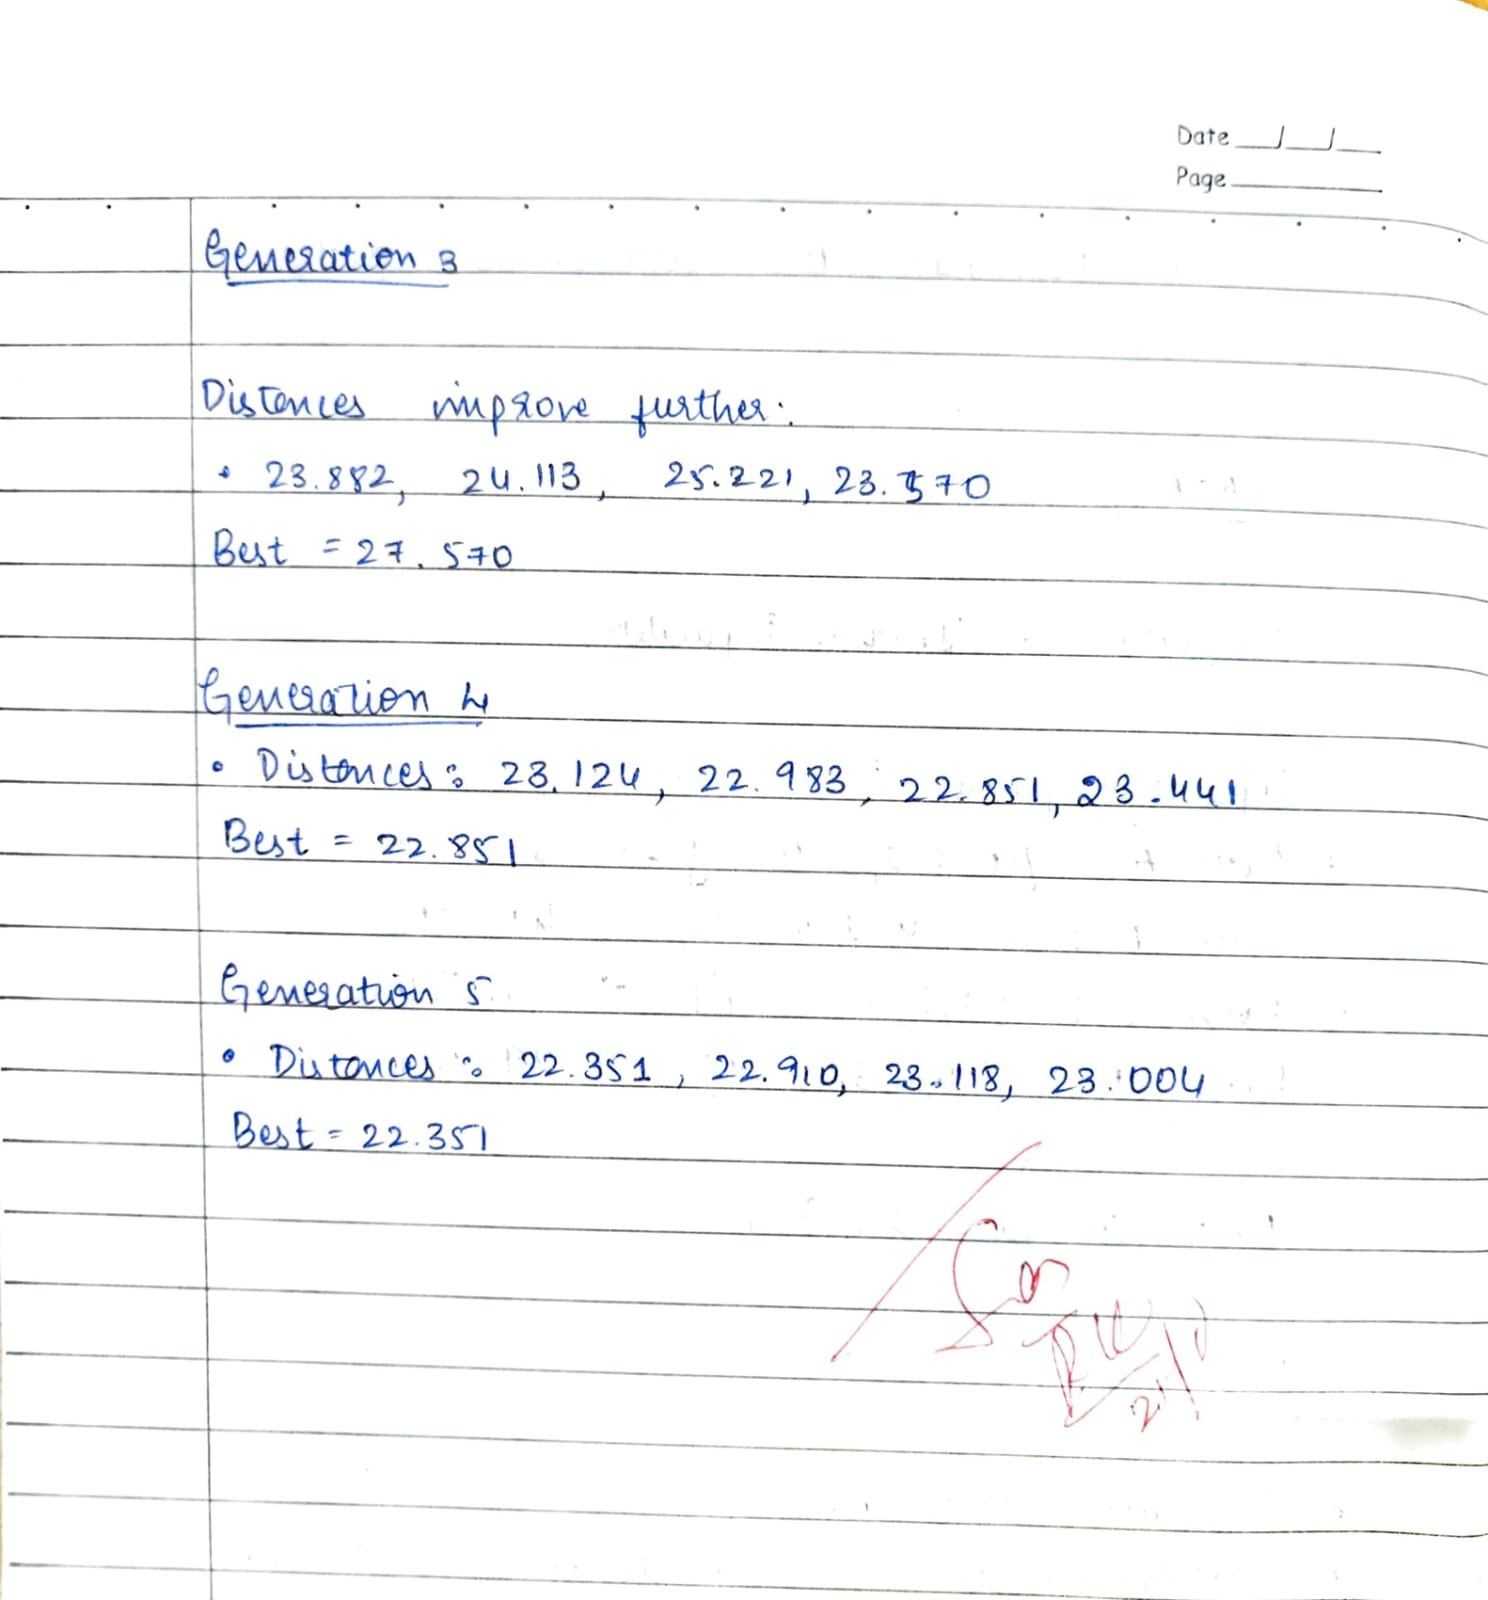 Date
Page
Generation 3
Distances improve further:
• 23.882, 24.113, 25.221, 23.570
Best = 27.570
Generation 4
• Distances: 23.124, 22.983, 22.851, 23.441
Best = 22.851
Generation 5
• Distances: 22.351, 22.910, 23.118, 23.004
Best = 22.351